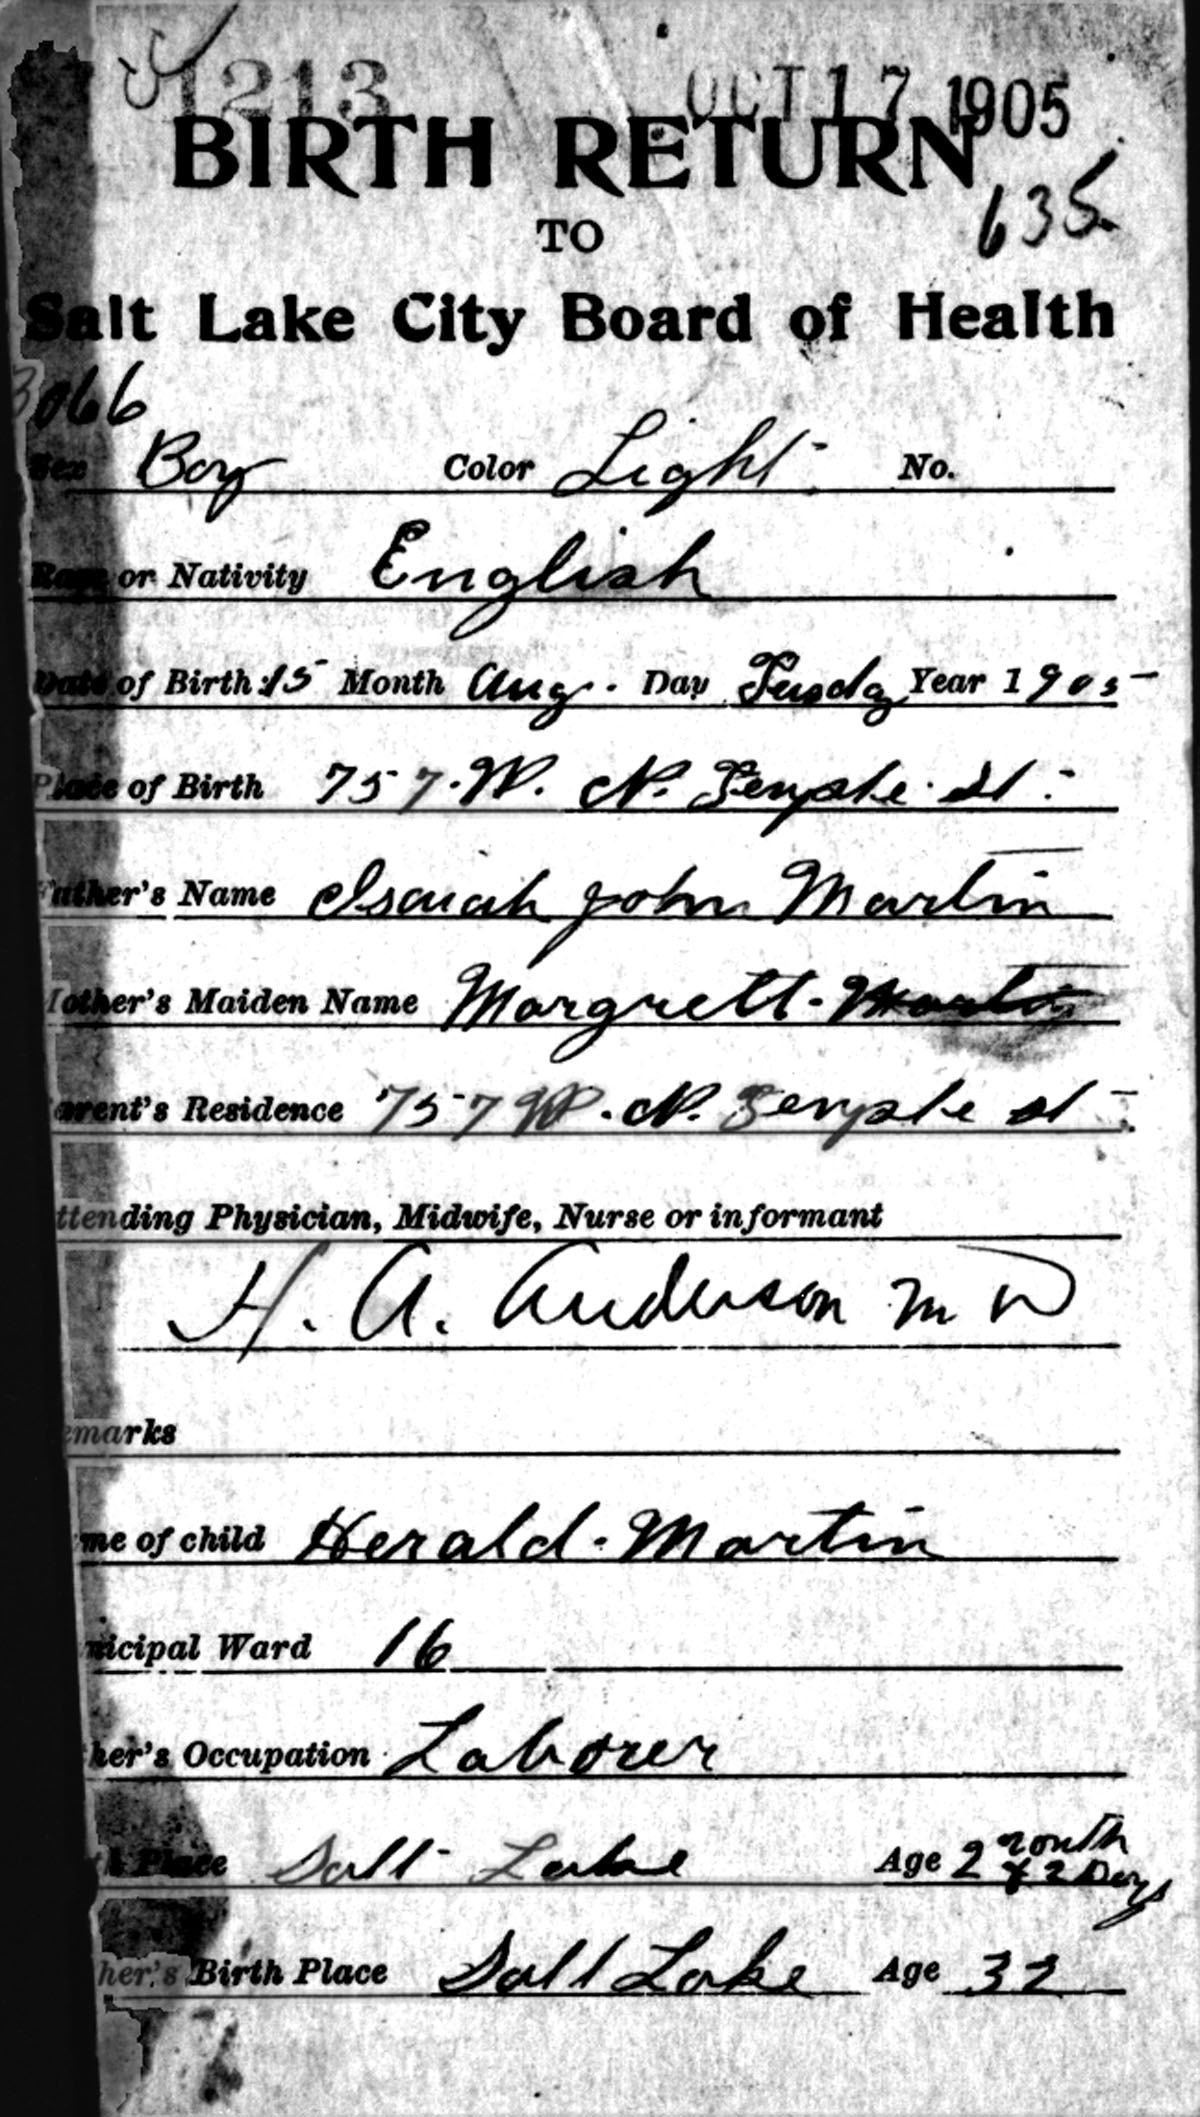 1213 OCT 17 1905
BIRTH RETURN
635
TO
Salt Lake City Board of Health
3066
Sex Boy Color Light No.
Race or Nativity English
Date of Birth 15 Month Aug. Day Tusday Year 1905
Place of Birth 757 W. N. Temple St.
Father's Name Isaiah John Martin
Mother's Maiden Name Margrett Martin
Parent's Residence 757 W. N. Temple st
ttending Physician, Midwife, Nurse or informant
H. A. Anderson M D
emarks
me of child Herald Martin
nicipal Ward 16
her's Occupation Laborer
th Place Salt Lake Age 2 month & 2 Days
her's Birth Place Salt Lake Age 32